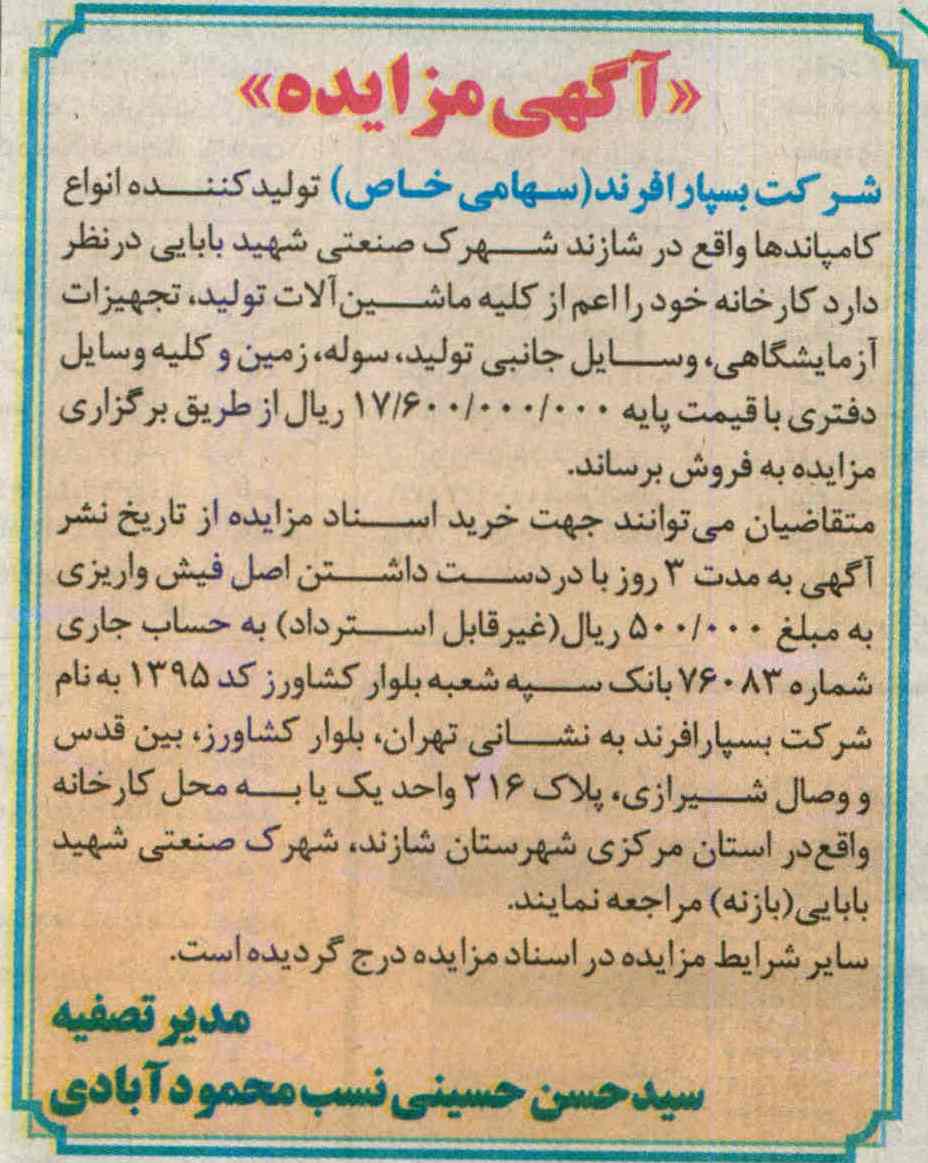 «آگهی مزایده»
شرکت بسپارافرند(سهامی خاص) تولیدکننده انواع
کامپاندها واقع در شازند شهرک صنعتی شهید بابایی درنظر
دارد کارخانه خود را اعم از کلیه ماشین‌آلات تولید، تجهیزات
آزمایشگاهی، وسایل جانبی تولید، سوله، زمین و کلیه وسایل
دفتری با قیمت پایه ۱۷/۶۰۰/۰۰۰/۰۰۰ ریال از طریق برگزاری
مزایده به فروش برساند.
متقاضیان می‌توانند جهت خرید اسناد مزایده از تاریخ نشر
آگهی به مدت ۳ روز با دردست داشتن اصل فیش واریزی
به مبلغ ۵۰۰/۰۰۰ ریال(غیرقابل استرداد) به حساب جاری
شماره ۷۶۰۸۳ بانک سپه شعبه بلوار کشاورز کد ۱۳۹۵ به نام
شرکت بسپارافرند به نشانی تهران، بلوار کشاورز، بین قدس
و وصال شیرازی، پلاک ۲۱۶ واحد یک یا به محل کارخانه
واقع در استان مرکزی شهرستان شازند، شهرک صنعتی شهید
بابایی(بازنه) مراجعه نمایند.
سایر شرایط مزایده در اسناد مزایده درج گردیده است.
مدیر تصفیه
سیدحسن حسینی نسب محمودآبادی